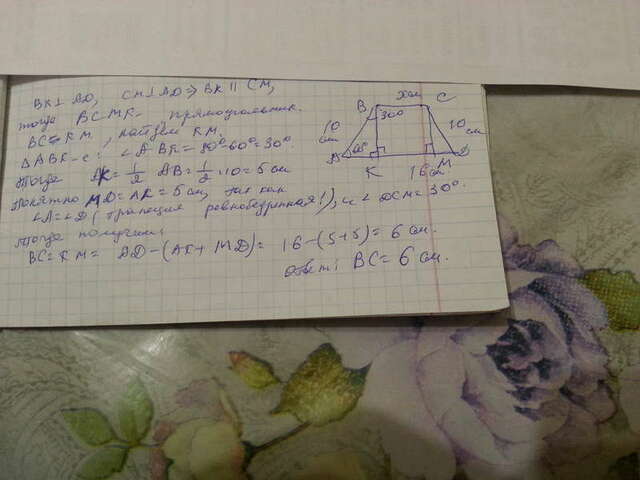 BK⊥AD, CM⊥AD ⇒ BK || CM,
тогда BCMK - прямоугольник.
BC = KM, найдём KM.
∠ABK = 90°-60°=30°.
Тогда AK = 1/2 AB = 1/2 · 10 = 5 см
Понятно MD = AK = 5 см, так как
∠A = ∠D (трапеция равнобедренная!), и ∠DCM = 30°.
Тогда получим
BC = KM = AD - (AK + MD) = 16 - (5+5) = 6 см.
Ответ: BC = 6 см.
x см
B
C
30°
10
см
10
см
A
60°
D
K
M
16 см